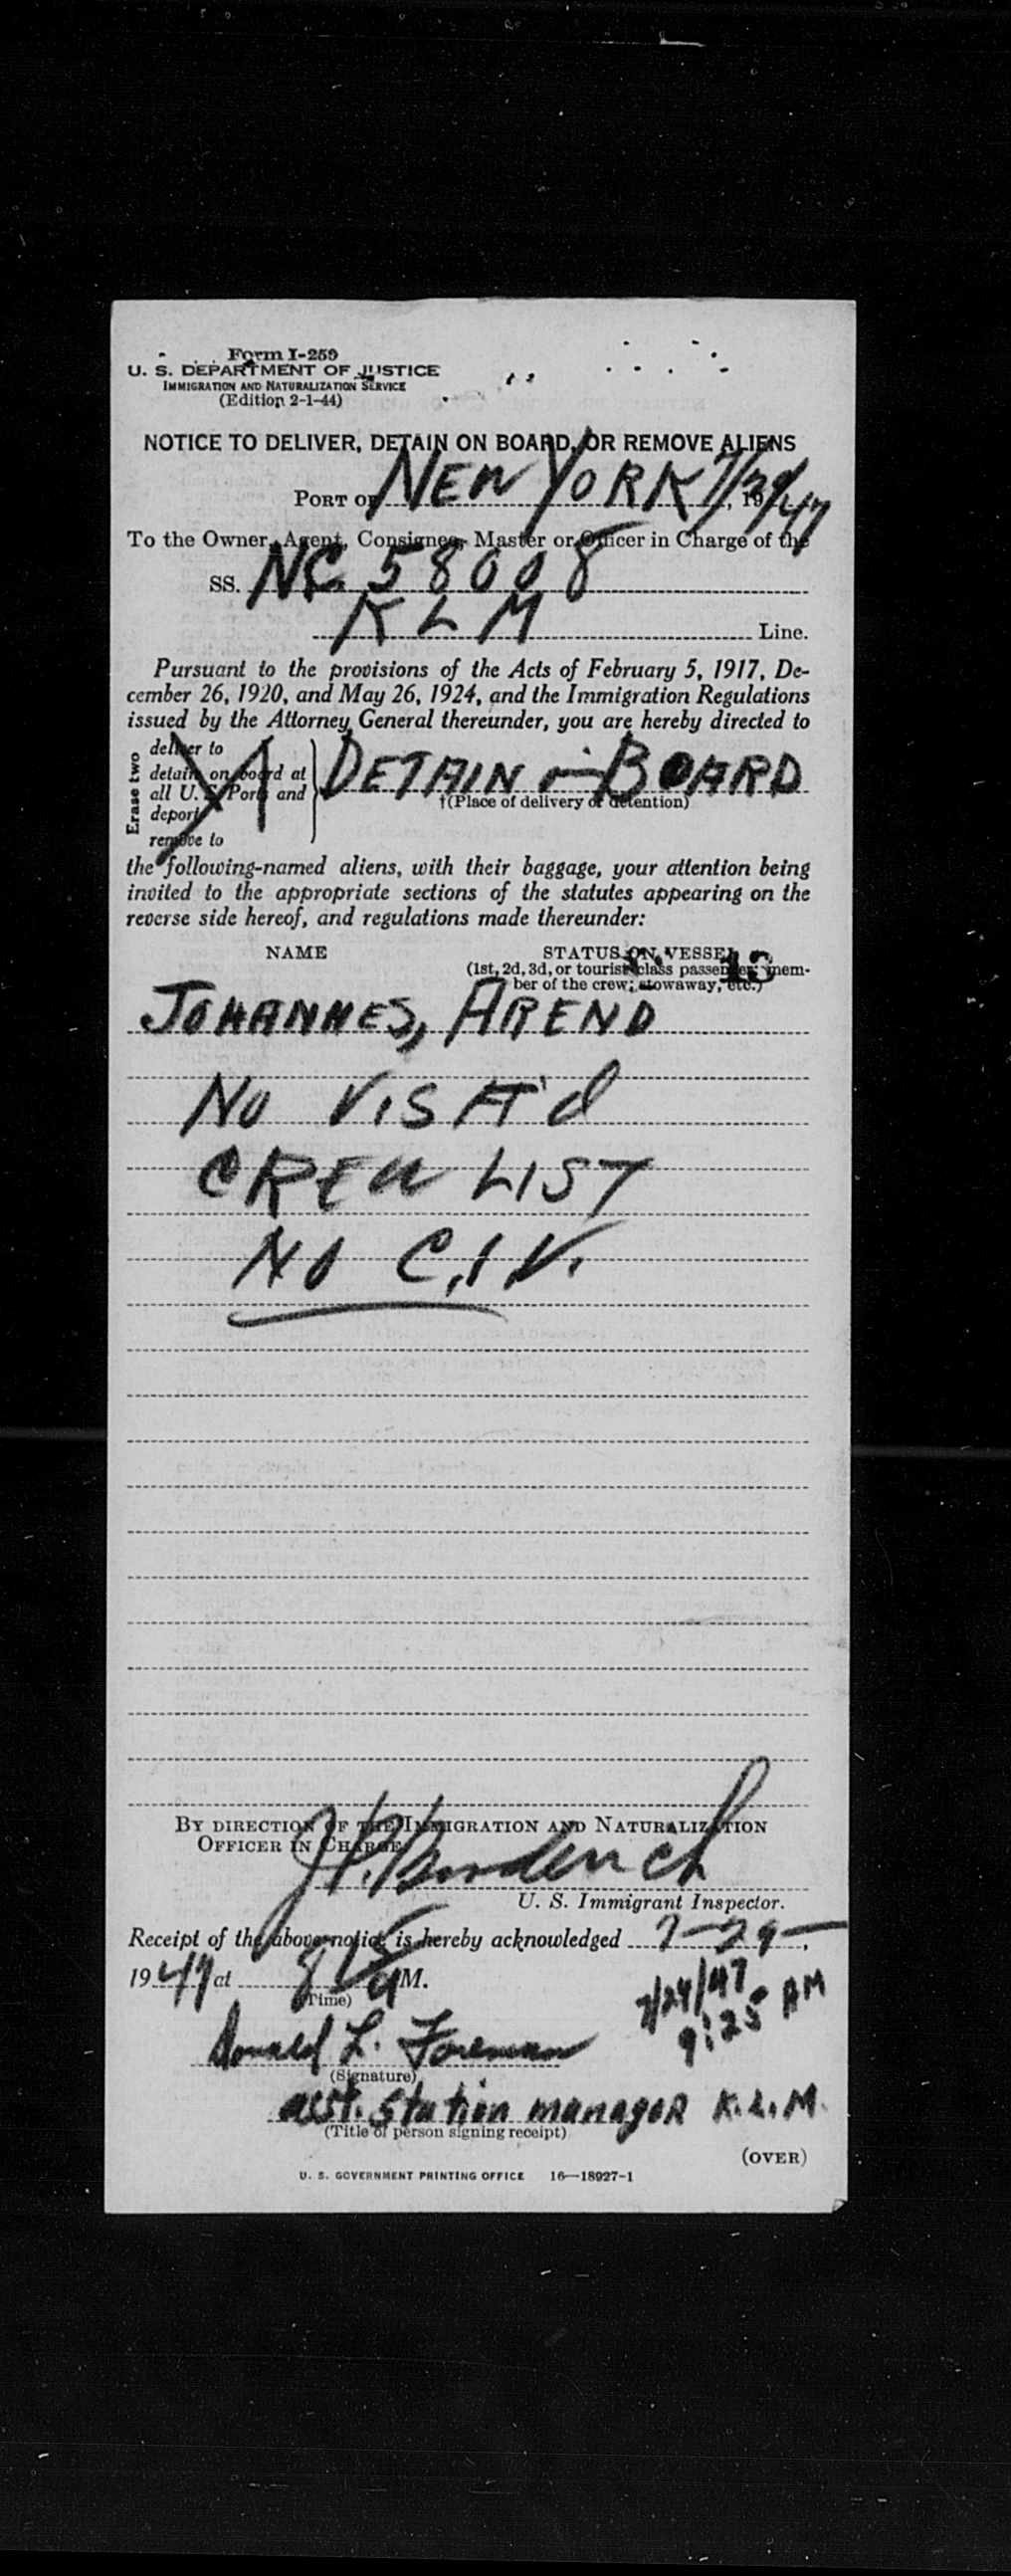 Form I-259
U. S. DEPARTMENT OF JUSTICE
IMMIGRATION AND NATURALIZATION SERVICE
(Edition 2-1-44)
NOTICE TO DELIVER, DETAIN ON BOARD, OR REMOVE ALIENS
PORT OF NEW YORK 7/29/47, 19
To the Owner, Agent, Consignee, Master or Officer in Charge of the
SS. NC 58008
KLM Line.
Pursuant to the provisions of the Acts of February 5, 1917, De-
cember 26, 1920, and May 26, 1924, and the Immigration Regulations
issued by the Attorney General thereunder, you are hereby directed to
Erase two
deliver to
detain on board at
all U. S. Ports and
deport
remove to
DETAIN on BOARD
†(Place of delivery or detention)
the following-named aliens, with their baggage, your attention being
invited to the appropriate sections of the statutes appearing on the
reverse side hereof, and regulations made thereunder:
NAME STATUS ON VESSEL
(1st, 2d, 3d, or tourist class passenger, mem-
ber of the crew, stowaway, etc.)
13
JOHANNES, AREND
NO VISA'd
CREW LIST
NO C.I.V.
BY DIRECTION OF THE IMMIGRATION AND NATURALIZATION
OFFICER IN CHARGE
U. S. Immigrant Inspector.
Receipt of the above notice is hereby acknowledged 7-29-,
1947 at M.
(Time)
7/29/47
9:25 AM
Donald L. Foreman
(Signature)
asst. station manager K.L.M.
(Title of person signing receipt)
(OVER)
U. S. GOVERNMENT PRINTING OFFICE 16—18927-1